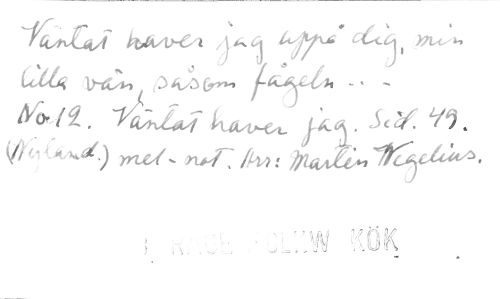 Väntat haver jag uppå dig, min
lilla vän, såsom fågeln . . -
No 12. Väntat haver jag. Sid. 49.
(Nyland.) mel-not. Arr: Martin Wegelius.
KÖK